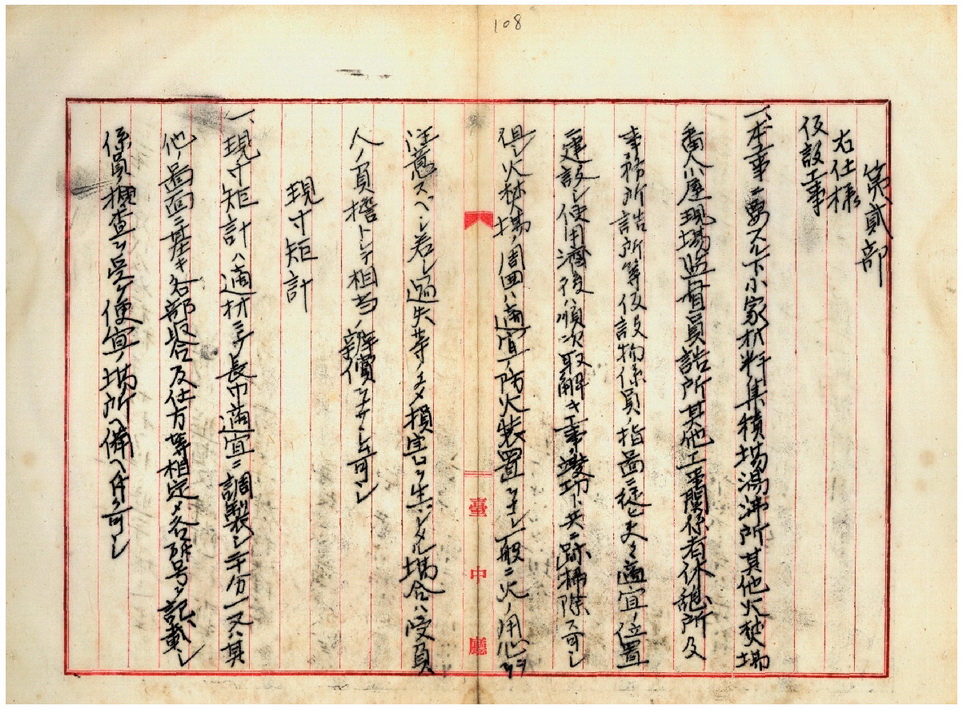 108
第貳部
右仕様
仮設工事
一、本工事ニ要スル下小家材料集積場湯沸所其他火焚場
番人小屋現場監督員詰所其他工事関係者休憩所及
事務所詰所等仮設物係員ノ指圖ニ従ヒ夫々適宜ノ位置
建設シ使用濟後ハ順次取解キ工事竣功ト共ニ跡掃除スヘシ
但シ火焚場ノ周囲ハ適宜ノ防火装置ヲナシ一般ニ火ノ用心ヲ
注意スベシ若シ過失等ノ為メ損害ヲ生シタル場合ハ受負
人ノ負擔トシテ相当ノ辨償ヲナサシム可シ
現寸矩計
一、現寸矩計ハ適材ニテ長巾適宜ニ調製シ二十分一又ハ其
他ノ圖面ニ基キ各部取合及仕方等相定メ各符号ヲ記載シ
係員ノ検査ヲ受ケ便宜ノ場所ヘ備ヘ付ク可シ
臺中廳